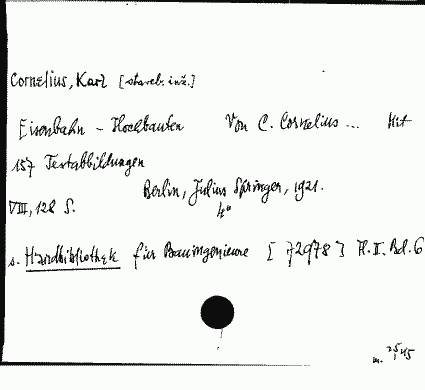 Cornelius, Karl [stareb. inž.]
Eisenbahn - Hochbauten Von C. Cornelius ... Mit
157 Textabbildungen
Berlin, Julius Springer, 1921.
VIII, 128 S. 4°
s. Handbibliothek für Bauingenieure [72978] H. II. Bd. 6